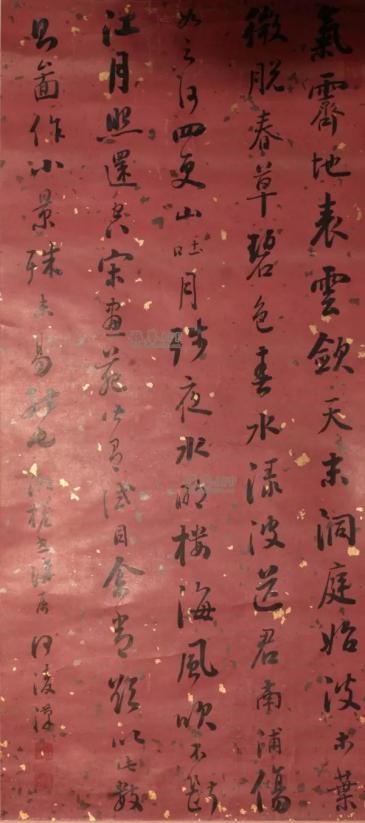 氣霽地表雲斂天末洞庭始波木葉
微脫春草碧色春水淥波送君南浦傷
如之何四更山吐月殘夜水明樓海風吹不斷
江月照還空宋畫苑試目余嘗欲以此數
啚作小景殊未易也何凌漢